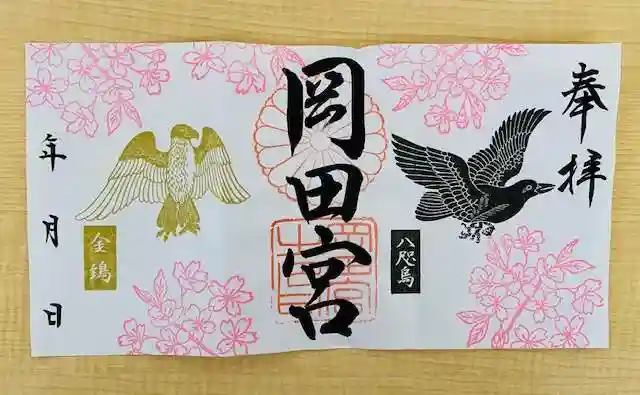 奉拝
八咫烏
岡田宮
金鵄
年 月 日